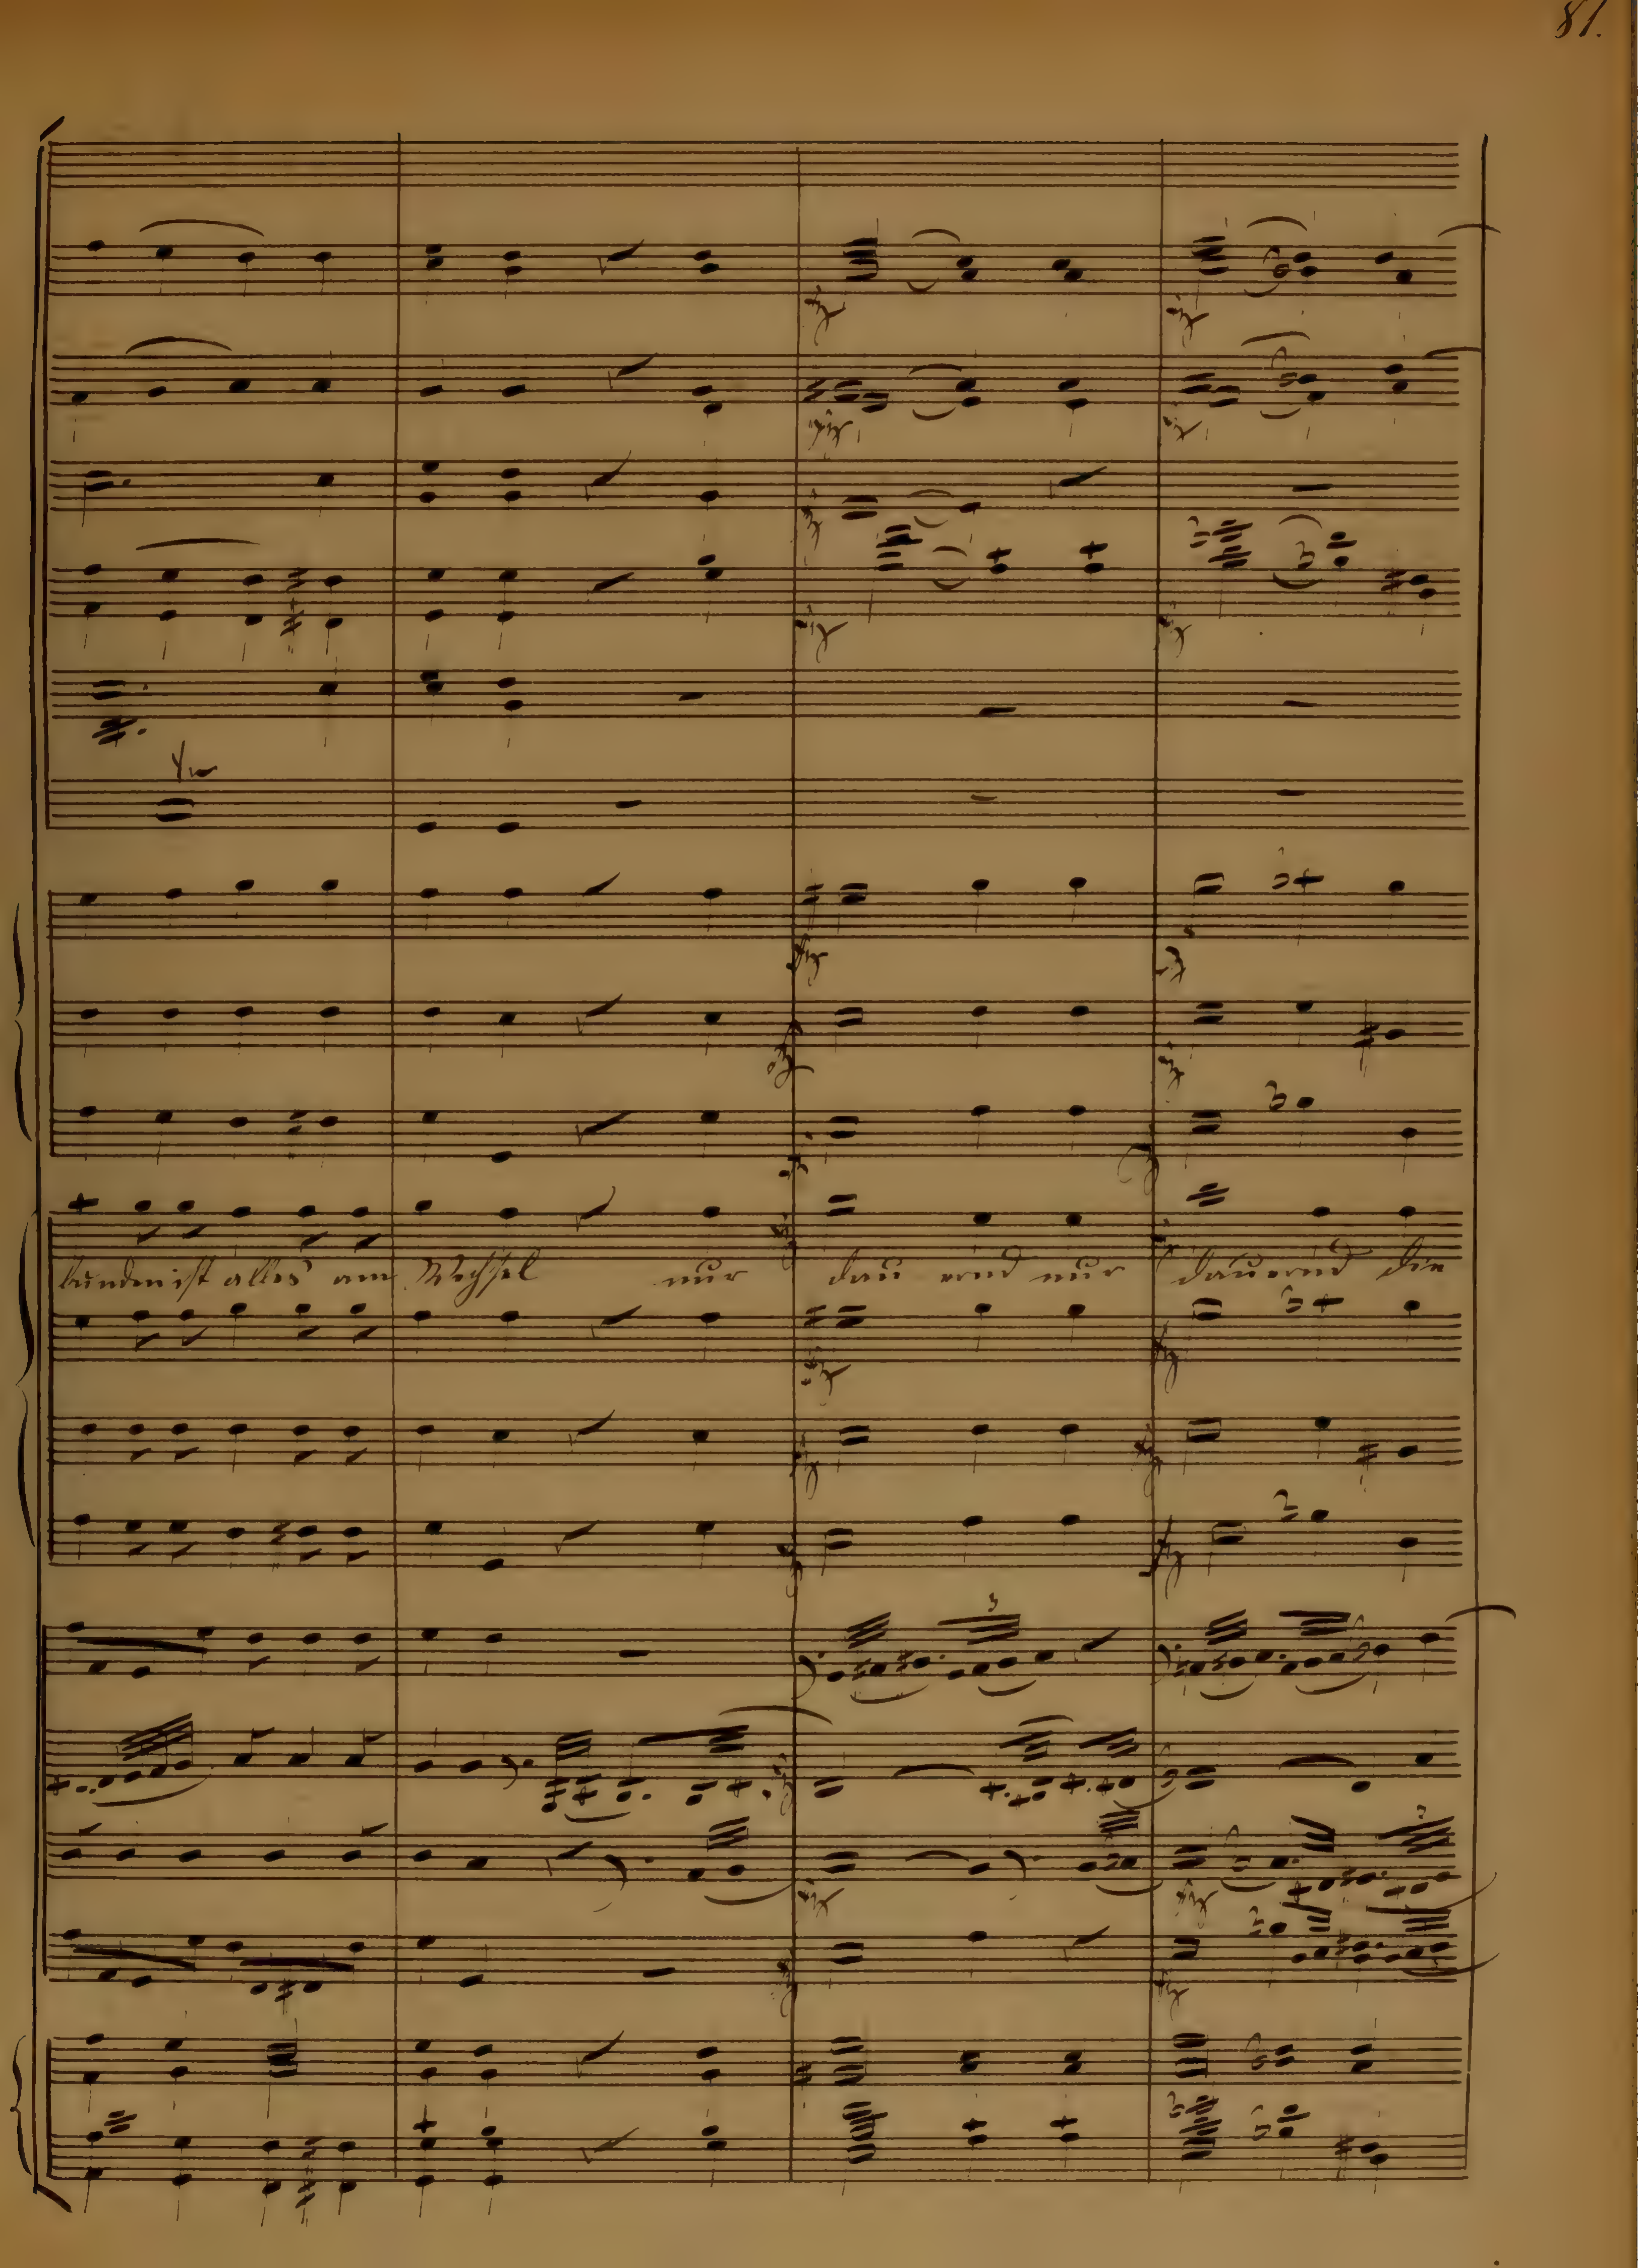 81.
bunden ist alles am Wechsel nur dau ernd nur dauernd die